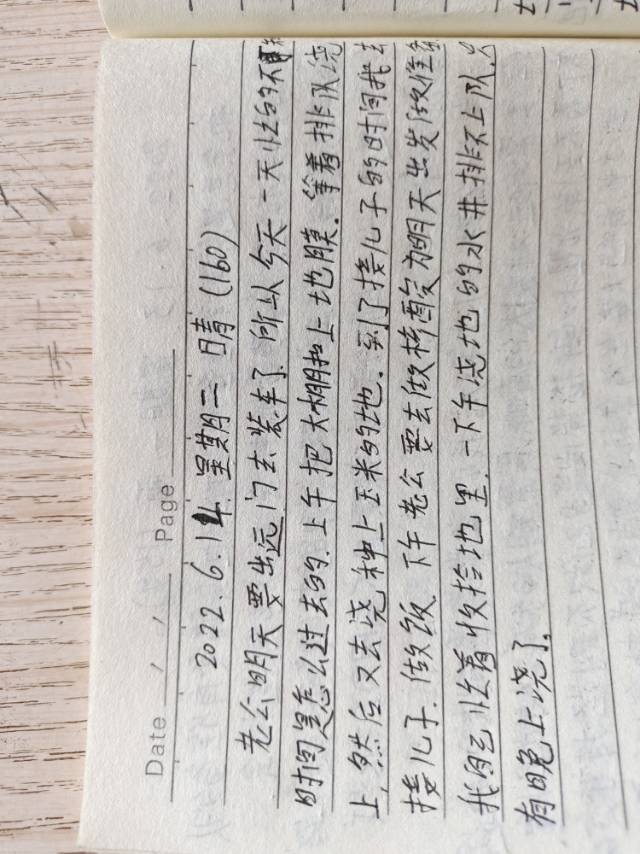 Date / / Page
2022.6.14. 星期二 晴 (160)
老公明天要出远门去装车了. 所以今天一天忙的不
时间是怎么过去的. 上午把大棚扣上地膜. 等着排队浇
上, 然后又去浇种上玉米的地. 到了接儿子的时间我去
接儿子. 做饭. 下午老公要去做核酸为明天出发做准
我自己忙着收拾地里. 一下午浇地的水井排不上队.
有晚上浇了.